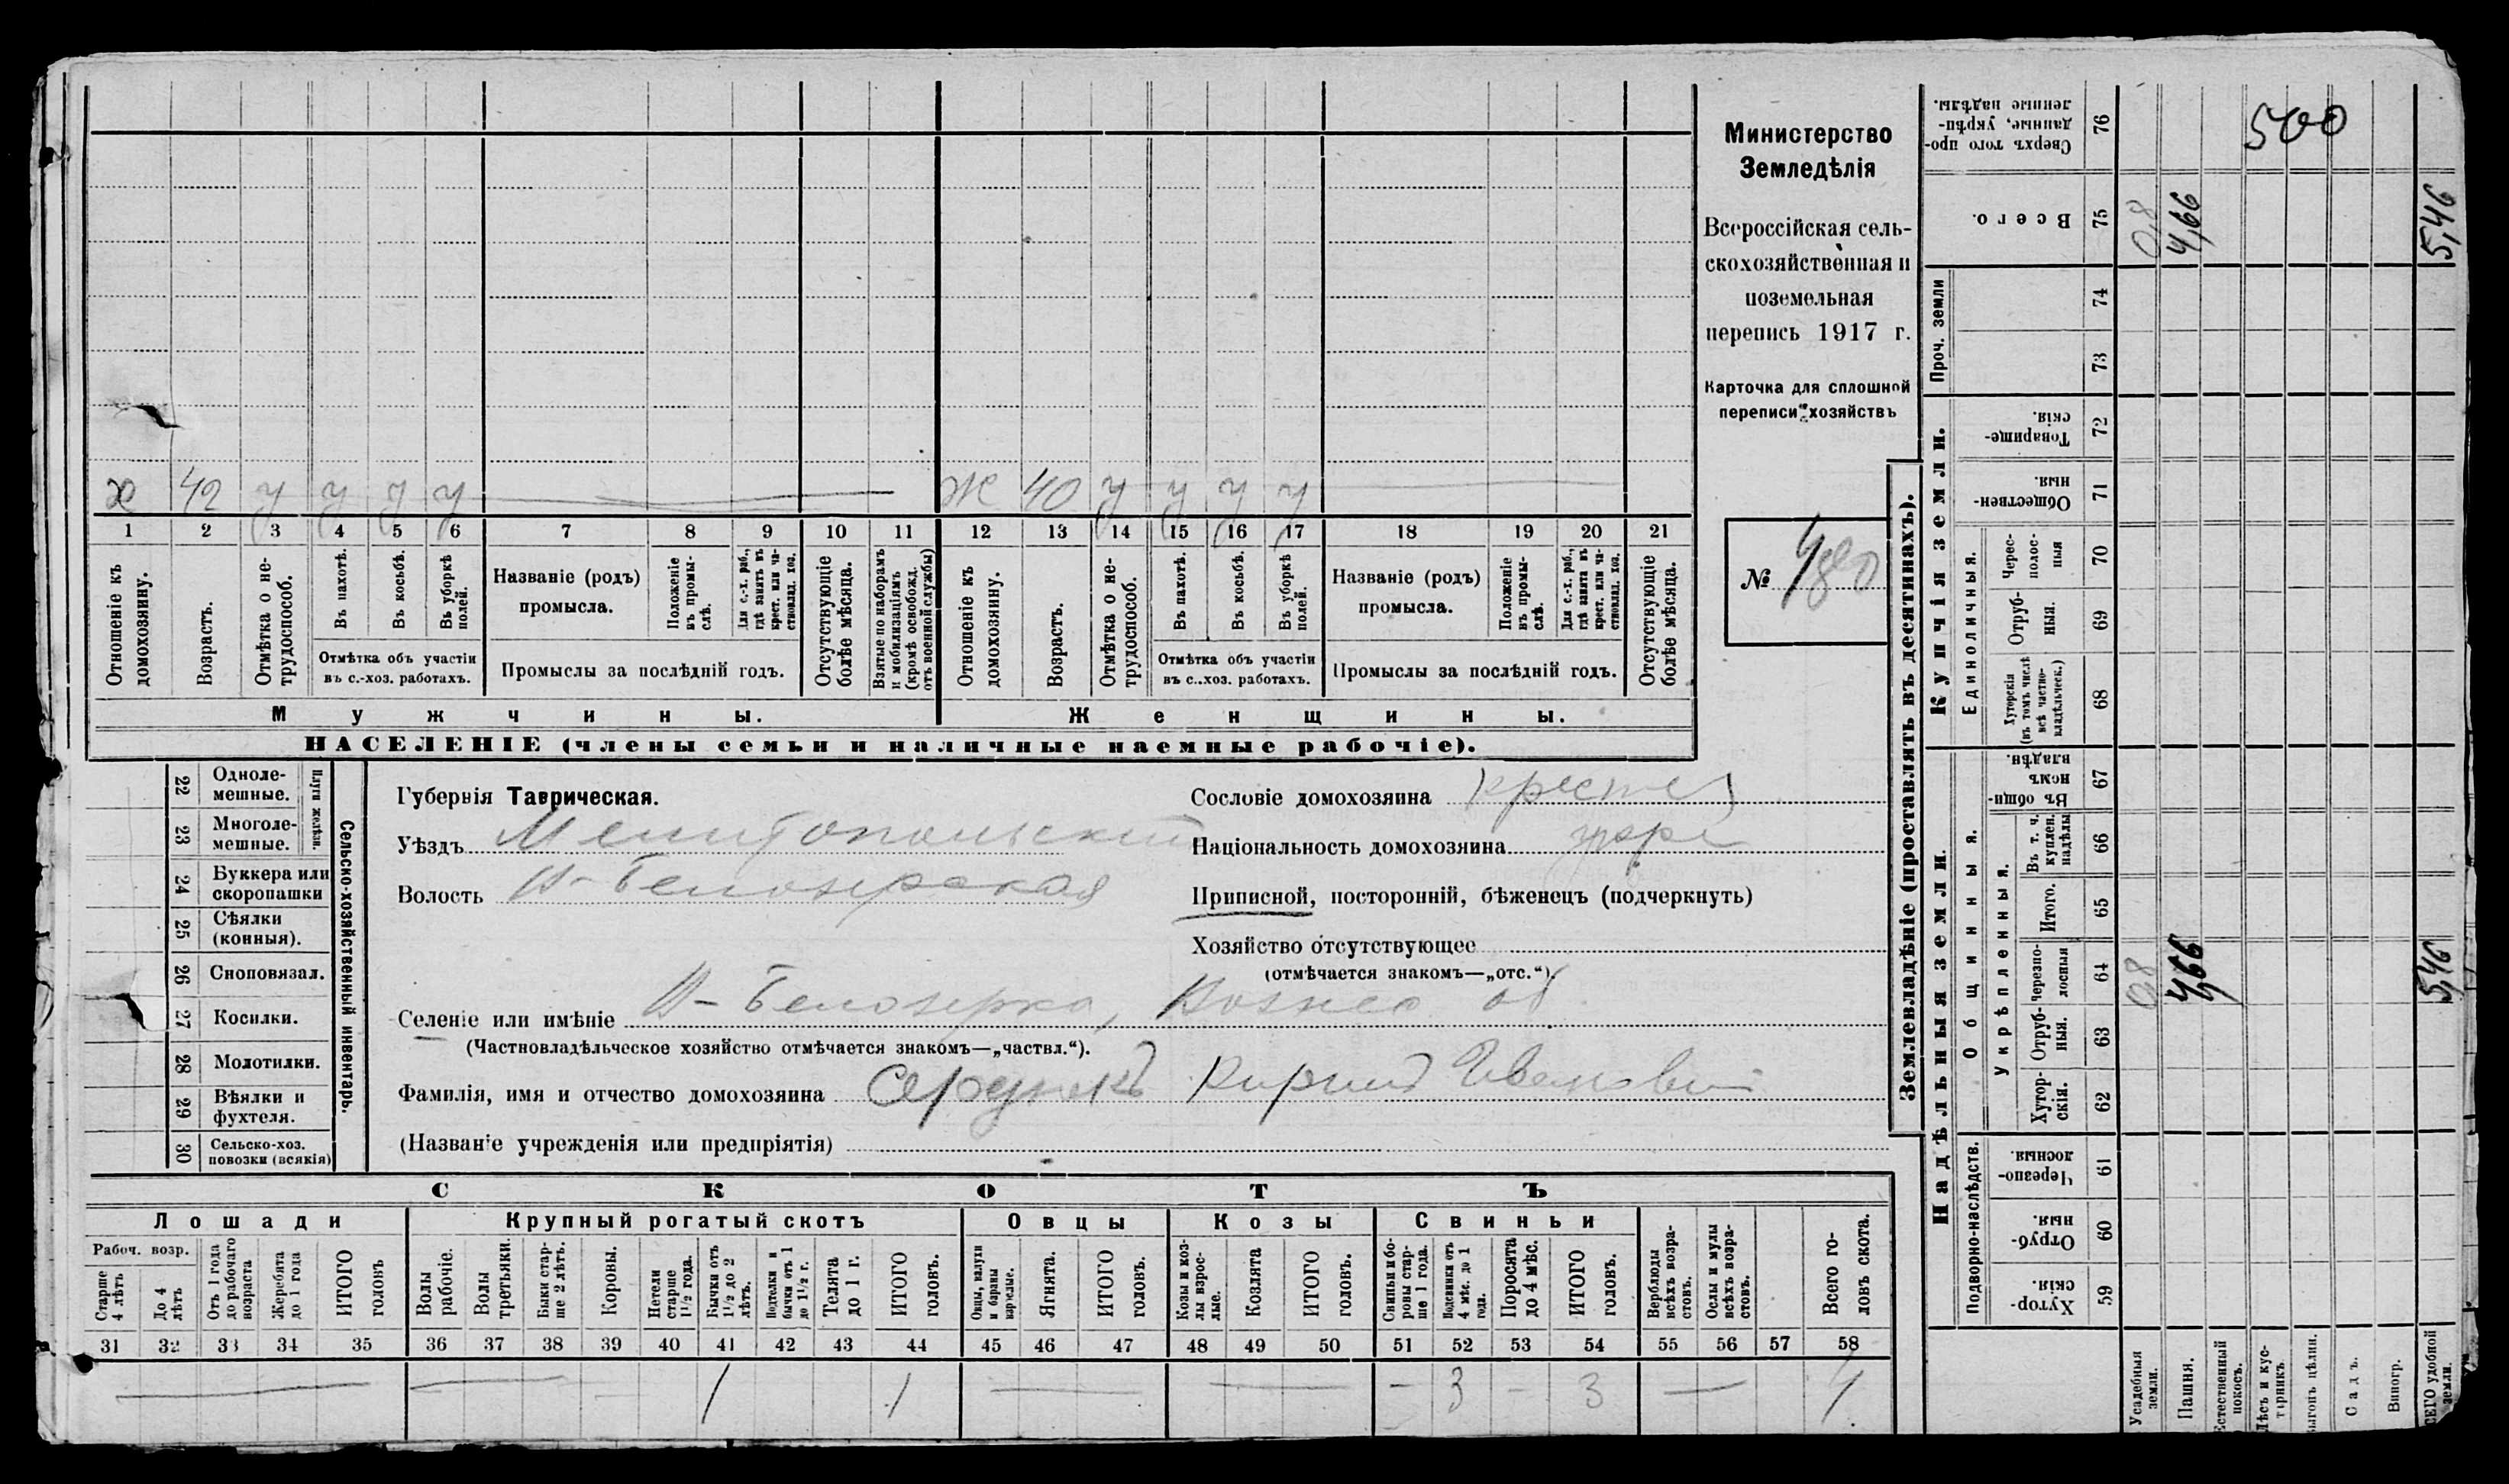 Министерство
Земледѣлія
Всероссійская сель-
скохозяйственная и
поземельная
перепись 1917 г.
Карточка для сплошной
переписи хозяйствъ
№ 480
х 42 у у у у
ж 40 у у у у
1 2 3 4 5 6 7 8 9 10 11 12 13 14 15 16 17 18 19 20 21
Отношеніе къ домохозяину.
Возрастъ.
Отмѣтка о не-трудоспособ.
Въ пахотѣ.
Въ косьбѣ.
Въ уборкѣ полей.
Отмѣтка объ участіи
въ с.-хоз. работахъ.
Названіе (родъ)
промысла.
Положеніе въ промы-слѣ.
Для с.-х. раб., гдѣ занятъ въ крест. или ча-стновлад. хоз.
Промыслы за послѣдній годъ.
Отсутствующіе болѣе мѣсяца.
Взятые по наборамъ и мобилизаціямъ (кромѣ освобожд. отъ военной службы)
Отношеніе къ домохозяину.
Возрастъ.
Отмѣтка о не-трудоспособ.
Въ пахотѣ.
Въ косьбѣ.
Въ уборкѣ полей.
Отмѣтка объ участіи
въ с..хоз. работахъ.
Названіе (родъ)
промысла.
Положеніе въ промы-слѣ.
Для с.-х. раб., гдѣ занята въ крест. или ча-стновлад. хоз.
Промыслы за послѣдній годъ.
Отсутствующіе болѣе мѣсяца.
Мужчины.
Женщины.
НАСЕЛЕНІЕ (члены семьи и наличные наемные рабочіе).
Сельско-хозяйственный инвентарь.
Плуги желѣзн.
22 Одноле-мешные.
23 Многоле-мешные.
24 Буккера или скоропашки
25 Сѣялки (конныя).
26 Сноповязал.
27 Косилки.
28 Молотилки.
29 Вѣялки и фухтеля.
30 Сельско-хоз. повозки (всякія)
Губернія Таврическая.
Уѣздъ Мелитопольский
Волость В-Белозерская
Сословіе домохозяина крестья
Національность домохозяина укр
Приписной, посторонній, бѣженецъ (подчеркнуть)
Хозяйство отсутствующее
(отмѣчается знакомъ—„отс.“).
Селеніе или имѣніе В-Белозерка, Вознес об
(Частновладѣльческое хозяйство отмѣчается знакомъ—„частвл.“).
Фамилія, имя и отчество домохозяина Кирилл Иванович
(Названіе учрежденія или предпріятія)
СКОТЪ
Лошади
Крупный рогатый скотъ
Овцы
Козы
Свиньи
Рабоч. возр.
Старше 4 лѣтъ
До 4 лѣтъ
Отъ 1 года до рабочаго возраста
Жеребята до 1 года
ИТОГО головъ
Волы рабочіе.
Волы третьяки.
Быки стар-ше 2 лѣтъ.
Коровы.
Нетели старше 1½ года.
Бычки отъ 1½ до 2 лѣтъ.
Подтелки и бычки отъ 1 до 1½ г.
Телята до 1 г.
ИТОГО головъ.
Овцы, валухи и бараны взрослые.
Ягнята.
ИТОГО головъ.
Козы и коз-лы взрос-лые.
Козлята
ИТОГО головъ.
Свиньи и бо-ровы стар-ше 1 года.
Подсвинки отъ 4 мѣс. до 1 года.
Поросята до 4 мѣс.
ИТОГО головъ.
Верблюды всѣхъ возра-стовъ.
Ослы и мулы всѣхъ возра-стовъ.
Всего го-ловъ скота.
31 32 33 34 35 36 37 38 39 40 41 42 43 44 45 46 47 48 49 50 51 52 53 54 55 56 57 58
— — — 1 1 — — — 3 — 3 — 4
Землевладѣніе (проставлять въ десятинахъ).
Надѣльныя земли.
Купчія земли.
Проч. земли
Подворно-наслѣдств.
Общинныя.
Укрѣпленныя.
Единоличныя.
Сверхъ того про-данные, укрѣп-ленные надѣлы. 76 500
Всего. 75 0,8 4,66 5,46
74
73
Товарище-скія. 72
Обществен-ныя. 71
Черес-полос-ныя 70
Отруб-ныя. 69
Хуторскія (въ томъ числѣ всѣ частно-владѣльческ.) 68
Въ общи-номъ владѣн. 67
Въ т. ч. куплен. надѣлы 66
Итого. 65
Черезпо-лосныя 64 0,8 4,66 5,46
Отруб-ныя. 63
Хутор-скія. 62
Черезпо-лосныя. 61
Отруб-ныя 60
Хутор-скія. 59
Усадебныя земли.
Пашня.
Естественный покосъ.
Лѣсъ и кус-тарникъ.
Садъ.
Виногр.
ВСЕГО удобной земли.